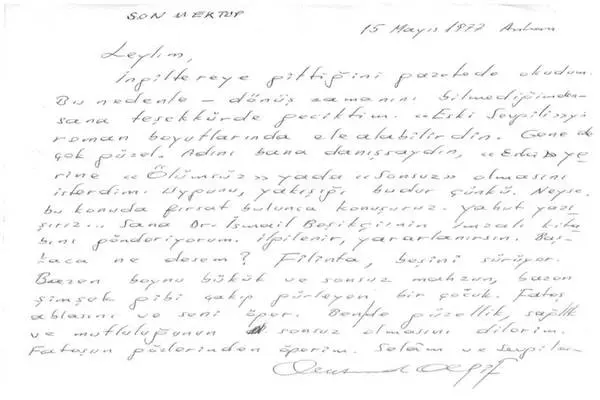 SON MEKTUP
15 Mayıs 1977 Ankara
Leylım,
İngiltereye gittiğini gazetede okudum.
Bu nedenle – dönüş zamanını bilmediğimden
sana teşekkürde geciktim. «Eski Sevgili»yi
roman boyutlarında ele alabilirdin. Gene de
çok güzel. Adını bana danışsaydın, «Eski» ye-
rine «Ölümsüz» yada «Sonsuz» olmasını
isterdim. Uygunu, yakışığı budur çünkü. Neyse.
bu konuda fırsat bulunca konuşuruz. yahut yazı-
şırız... Sana Dr. İsmail Beşikçi'nin imzalı kita-
bını gönderiyorum. İlgilenir, yararlanırsın. Baş-
kaca ne desem? Filinta, beşini sürüyor.
Bazen boynu bükük ve sonsuz mahzun, bazen
şimşek gibi çakıp gürleyen, bir çocuk. Fatoş
ablasını ve seni öper. Bende güzellik, sağlık
ve mutluluğunun sonsuz olmasını dilerim.
Fatoşun gözlerinden öperim. Selâm ve sevgiler